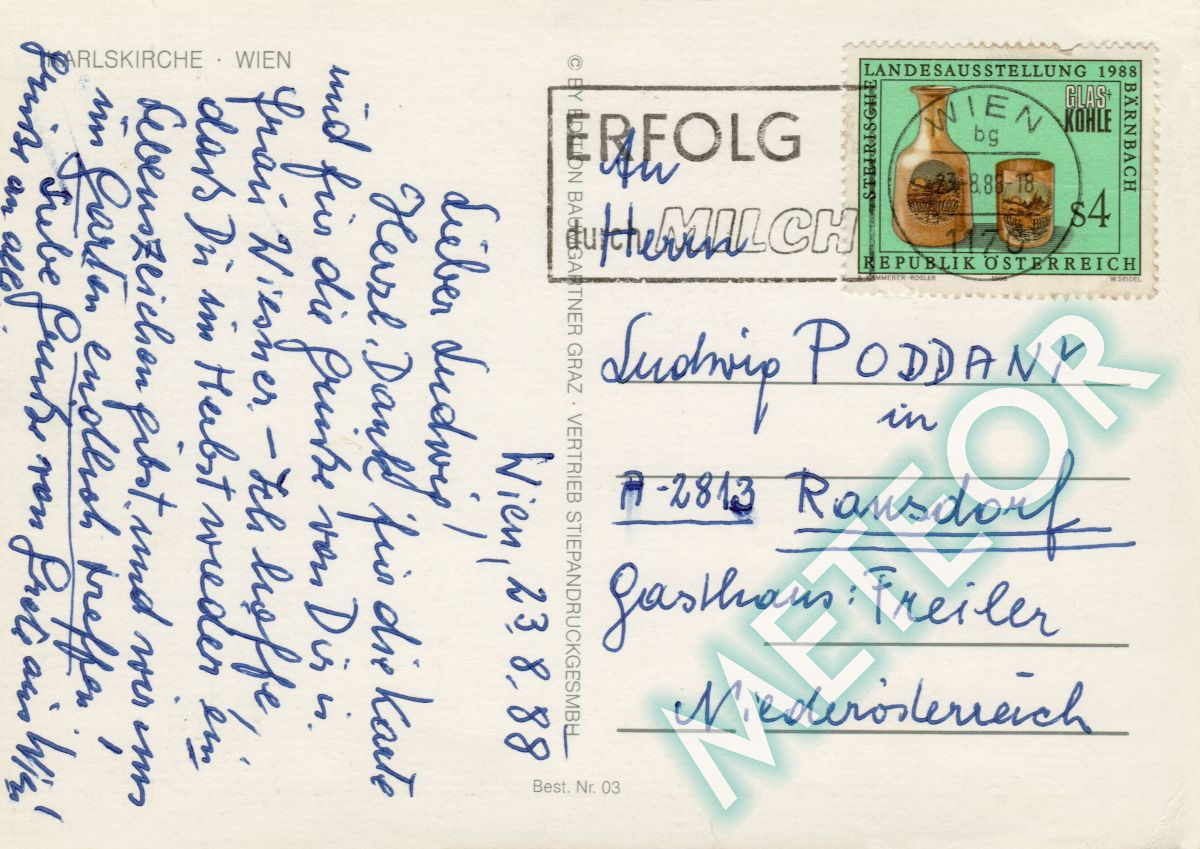 KARLSKIRCHE · WIEN
Wien, 23.8.88
Lieber Ludwig,
Herzl. Dank für die Karte
und für die Grüße von Dir u.
Frau Wiesner. – Ich hoffe,
daß Du im Herbst wieder ein
Lebenszeichen gibst und wir uns
im Garten endlich treffen!
Liebe Grüße von Grete aus Wien
Grüße an alle!
© BY EDITION BAUMGARTNER GRAZ · VERTRIEB STIEPANDRUCKGESMBH
Best. Nr. 03
ERFOLG
durch MILCH
STEIRISCHE
LANDESAUSSTELLUNG 1988
BÄRNBACH
GLAS+
KOHLE
s4
REPUBLIK ÖSTERREICH
1988
W. SEIDEL
WIEN
bg
23.8.88-18
An
Herrn
Ludwig PODDANY
in
A-2813 Ransdorf
Gasthaus: Freiler
Niederösterreich
METEOR